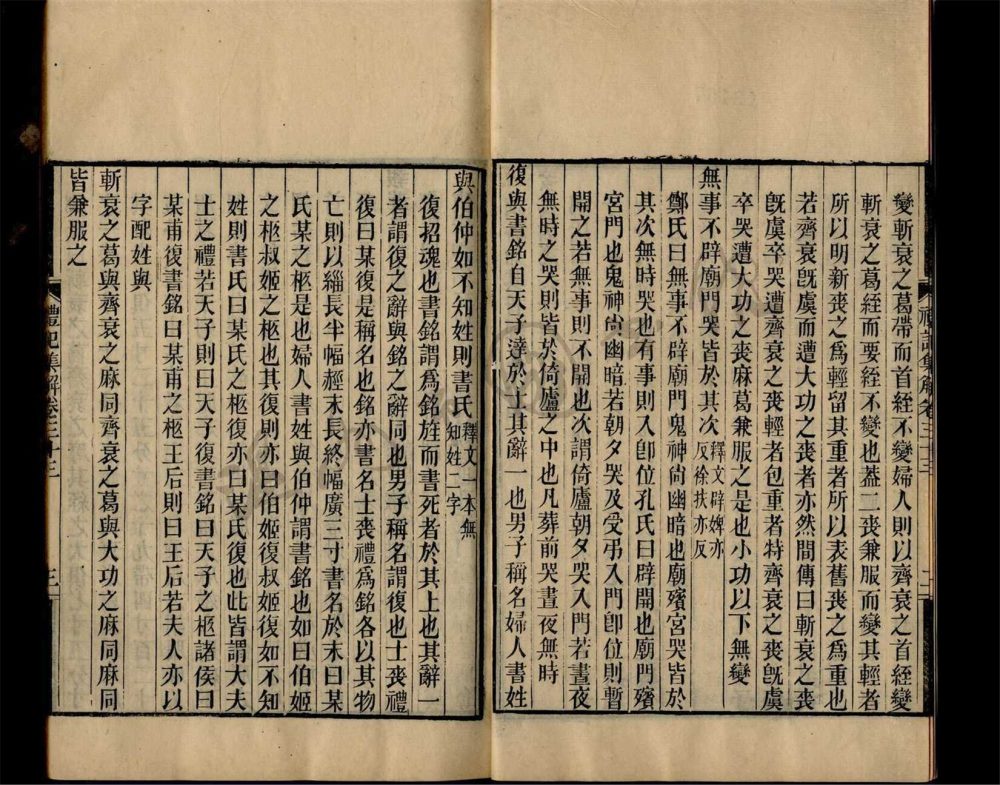 變斬衰之葛帶而首絰不變婦人則以齊衰之首絰變
斬衰之葛絰而要絰不變也蓋二喪兼服而變其輕者
所以明新喪之爲輕留其重者所以表舊喪之爲重也
若齊衰旣虞而遭大功之喪者亦然間傳曰斬衰之喪
旣虞卒哭遭齊衰之喪輕者包重者特齊衰之喪旣虞
卒哭遭大功之喪麻葛兼服之是也小功以下無變
無事不辟廟門哭皆於其次釋文辟婢亦反徐扶亦反
鄭氏曰無事不辟廟門鬼神尙幽暗也廟殯宮哭皆於
其次無時哭也有事則入卽位孔氏曰辟開也廟門殯
宮門也鬼神尙幽暗若朝夕哭及受弔入門卽位則暫
開之若無事則不開也次謂倚廬朝夕哭入門若晝夜
無時之哭則皆於倚廬之中也凡葬前哭晝夜無時
復與書銘自天子達於士其辭一也男子稱名婦人書姓
禮記集解卷三十三
二
與伯仲如不知姓則書氏釋文一本無知姓二字
復招魂也書銘謂爲銘旌而書死者於其上也其辭一
者謂復之辭與銘之辭同也男子稱名謂復也士喪禮
復曰某復是稱名也銘亦書名士喪禮爲銘各以其物
亡則以緇長半幅赬末長終幅廣三寸書名於末曰某
氏某之柩是也婦人書姓與伯仲謂書銘也如曰伯姬
之柩叔姬之柩也其復則亦曰伯姬復叔姬復如不知
姓則書氏曰某氏之柩復亦曰某氏復也此皆謂大夫
士之禮若天子則曰天子復書銘曰天子之柩諸侯曰
某甫復書銘曰某甫之柩王后則曰王后若夫人亦以
字配姓與
斬衰之葛與齊衰之麻同齊衰之葛與大功之麻同麻同
皆兼服之
禮記集解卷三十三
三